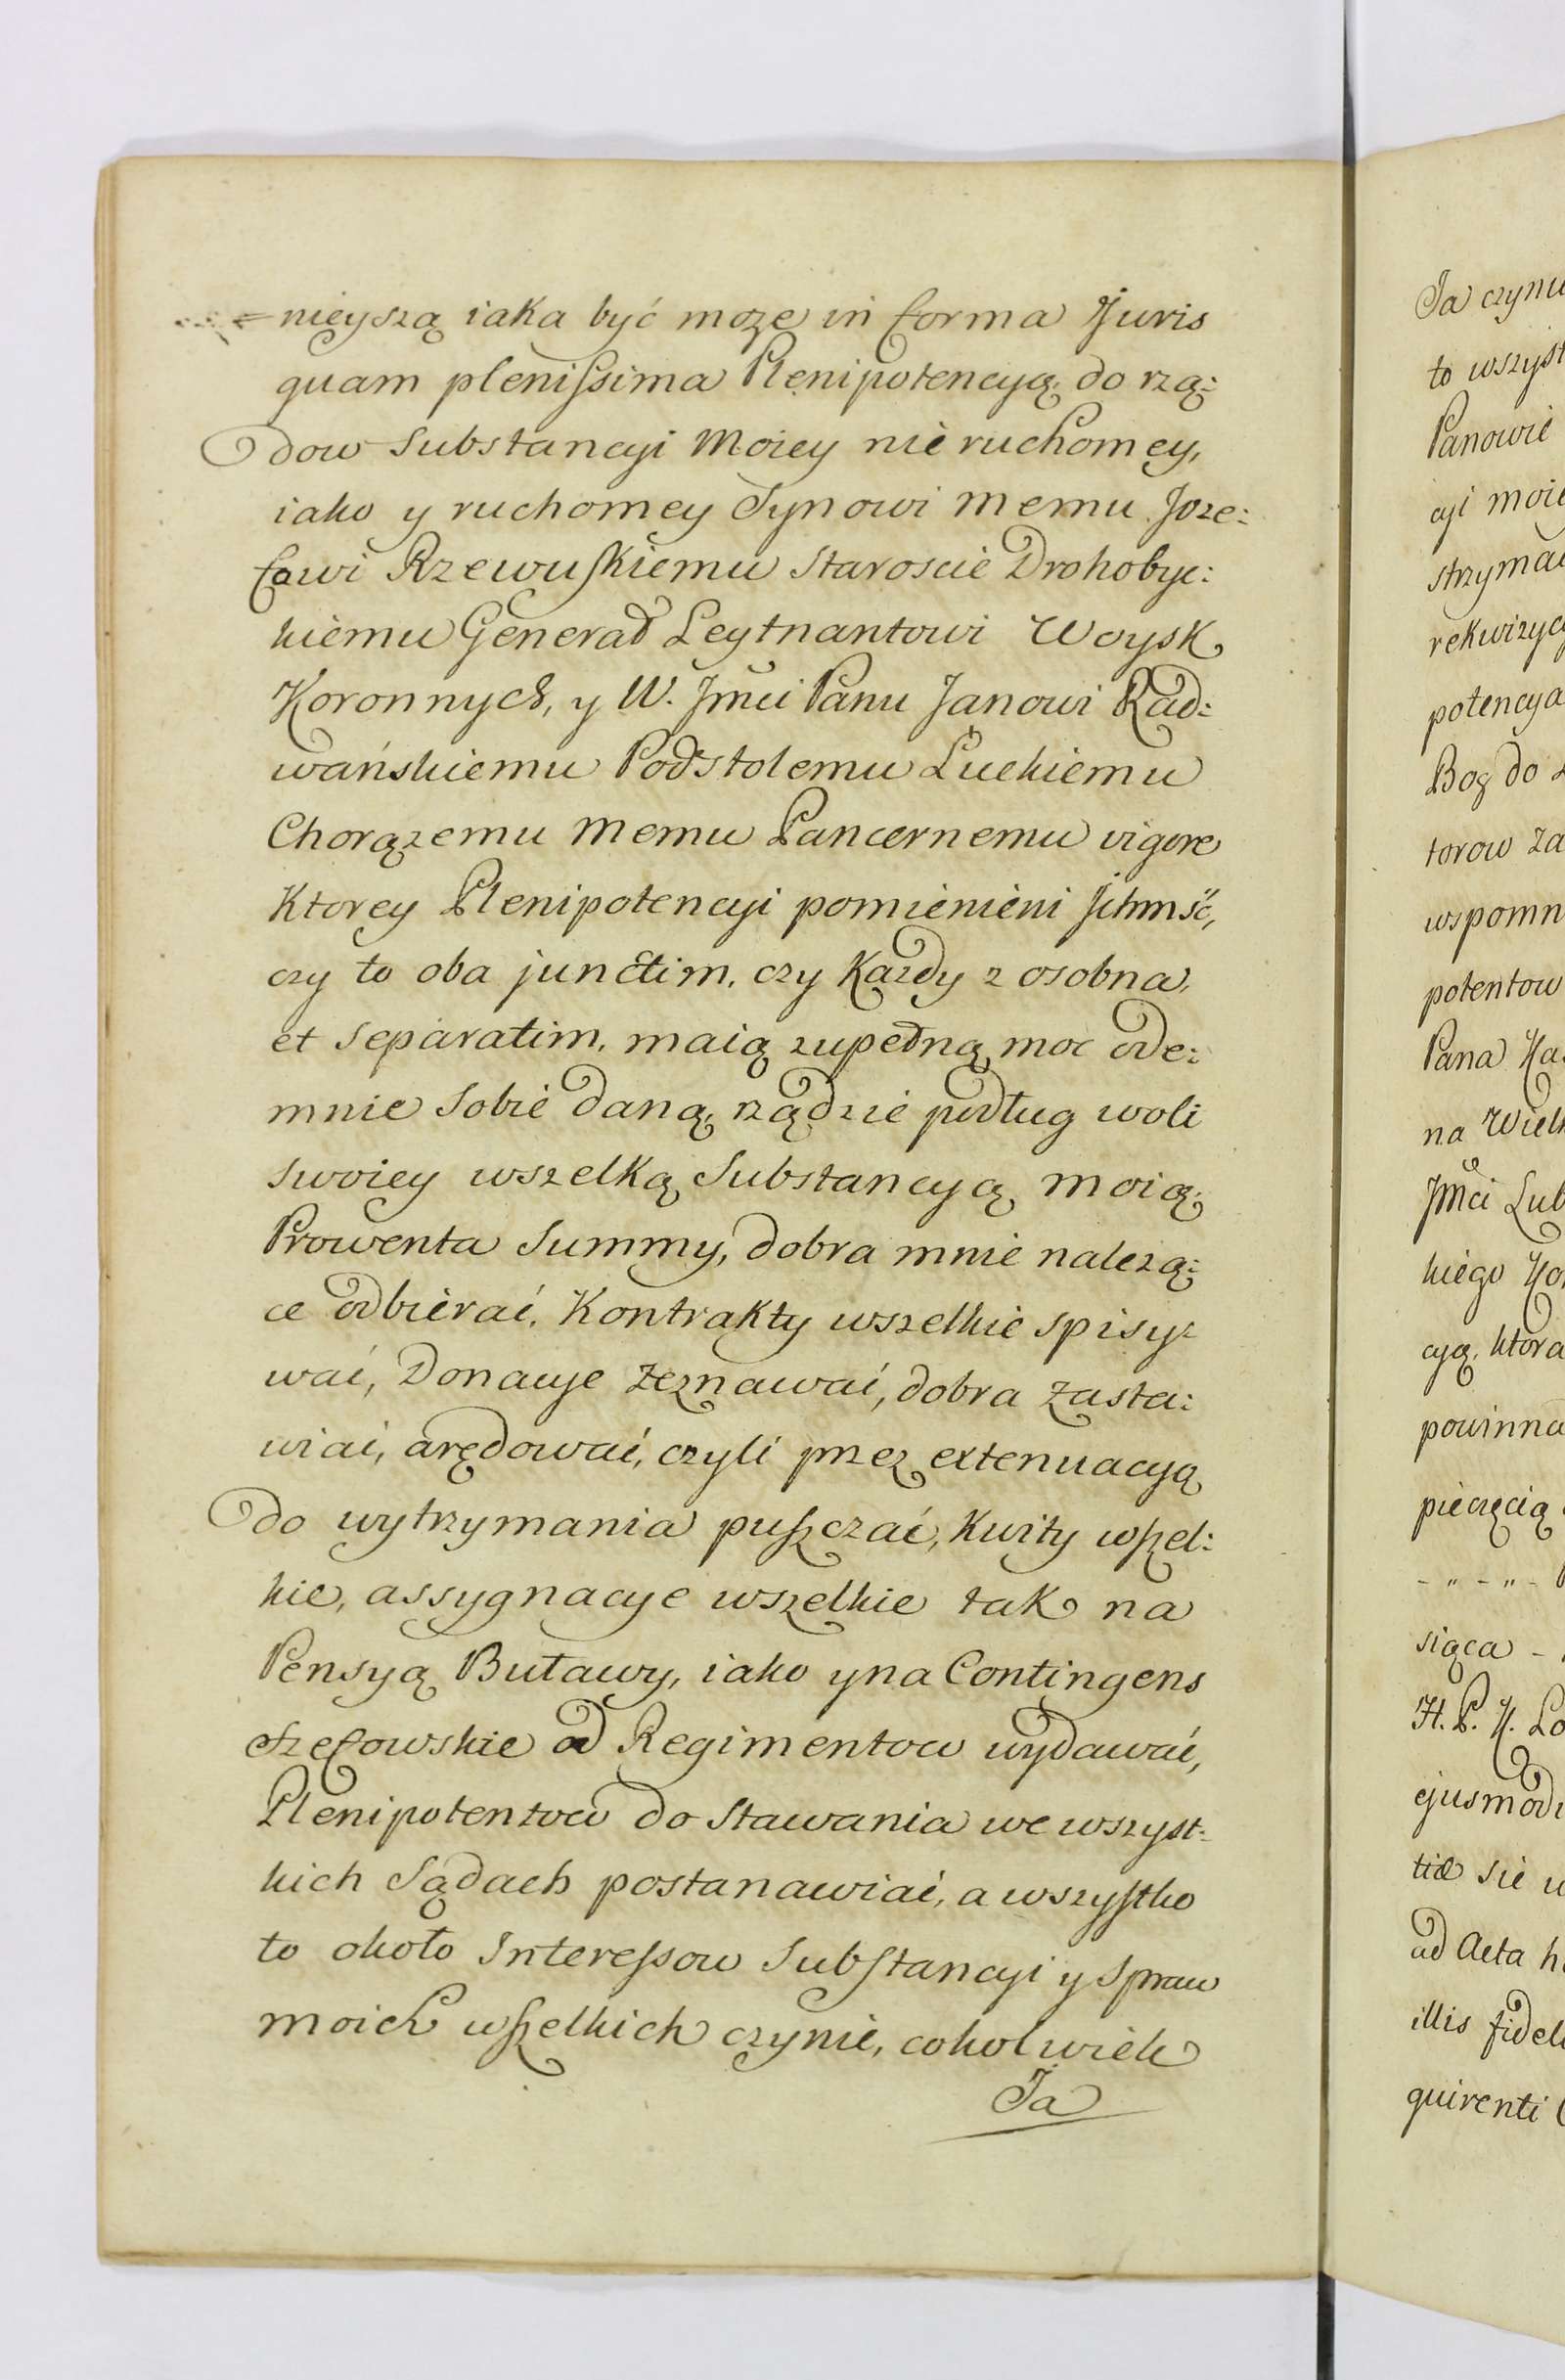 =nieyszą iaka być może in forma Juris
quam plenissima Plenipotencyą do rzą:
dow Substancyi Moiey nieruchomey,
iako y ruchomey Synowi Memu Joze:
fowi Rzewuskiemu Staroscie Drohobyc:
kiemu Generał Leytnantowi Woysk
Koronnych, y W. Jmci Panu Janowi Rad:
wańskiemu Podstolemu Luckiemu
Chorążemu Memu Pancernemu vigore
Ktorey Plenipotencyi pomienieni Jchmść,
czy to oba junctim, czy Kazdy z osobna,
et separatim, maią zupełną moc ode:
mnie Sobie daną, rządzić podług woli
Swoiey wszelką Substancyą moią,
Prowenta Summy, dobra mnie nalezą:
ce odbierać, Kontrakty wszelkie spisy:
wać, Donacye zeznawać, dobra zasta:
wiać, arędować, czyli przez extenuacyą
do wytrzymania puszczać, Kwity wszel:
kie, assygnacye wszelkie tak na
Pensyą Buławy, iako y na Contingens
Szefowskie od Regimentow wydawać,
Plenipotentow do Stawania we wszyst:
kich Sądach postanawiać, a wszystko
to około Interessow Substancyi y Spraw
moich wszelkich czynić, cokolwiek
Ja
Ja czynu
to wszyst
Panowie
cyi moie
strzymać
rekwizyc
potencya
Bog do
torow za
wspomn
potentow
Pana
na Wiel
Jmci Lub
kiego
cyą, ktora
powinna
pieczęcią
- „ - „ -
siąca -
H. P. K.
ejusmodi
tiæ sie
ad Acta h
illis fidel
quirenti